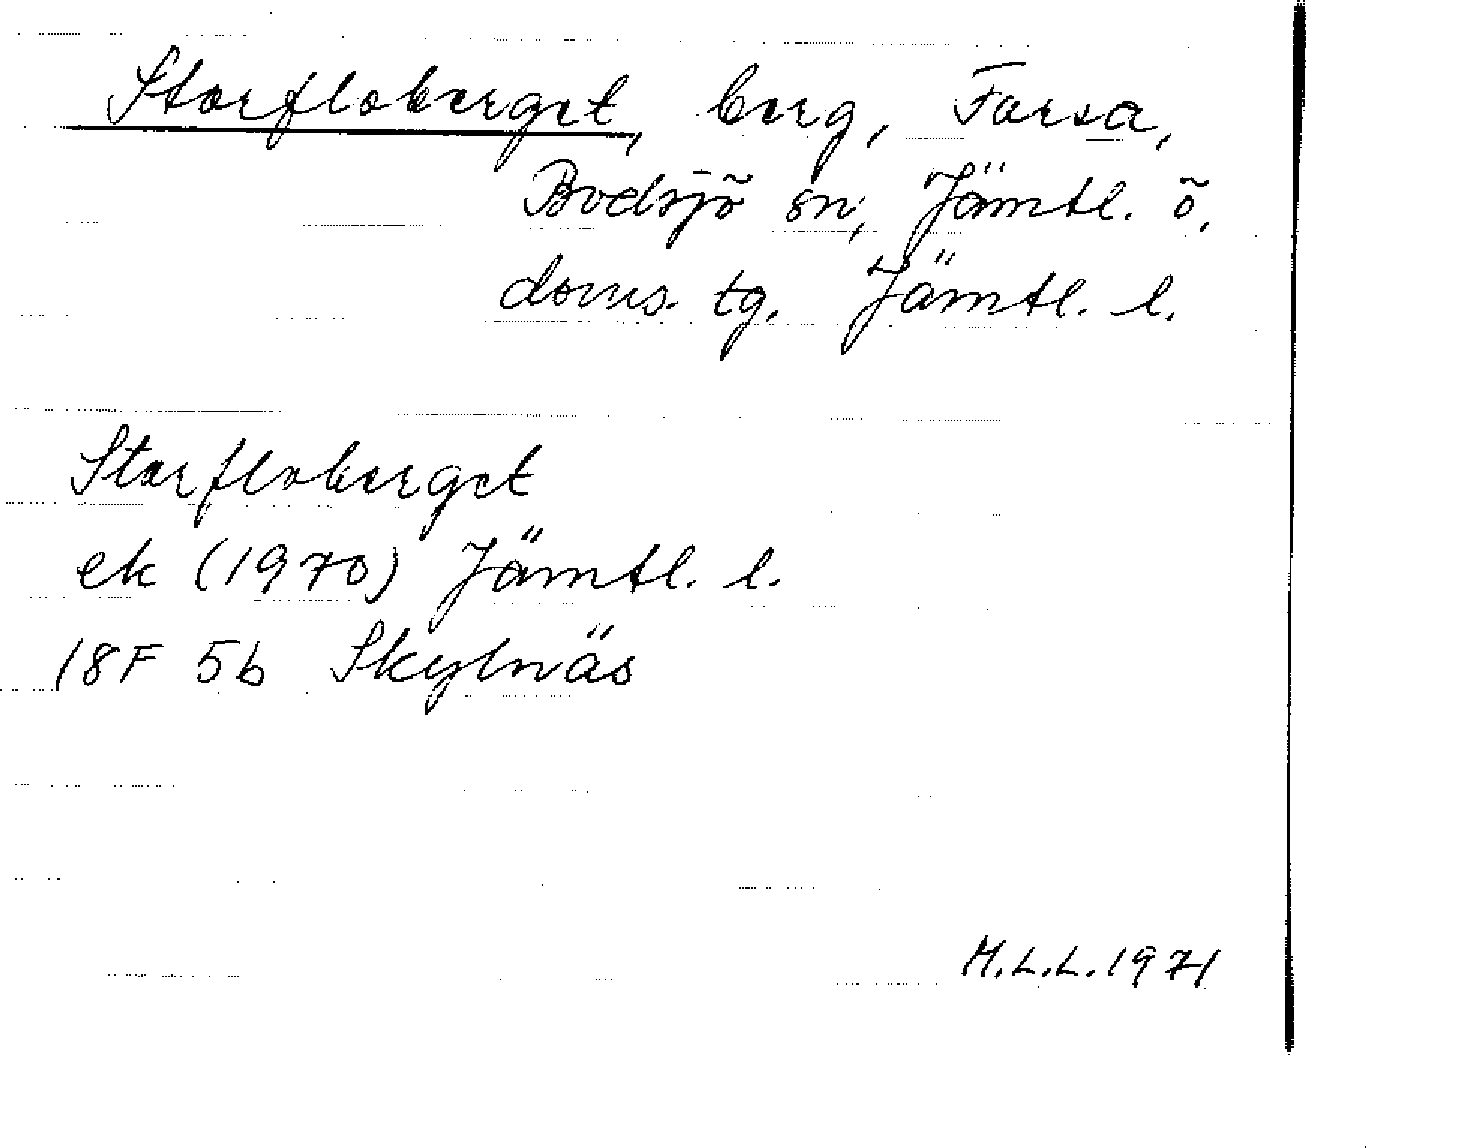 Storfloberget, berg, Forsa,
Bodsjö sn, Jämtl. ö.
doms. tg. Jämtl. l.
Storfloberget
ek (1970) Jämtl. l.
18F 5b Skylnäs
M.L.L. 1971